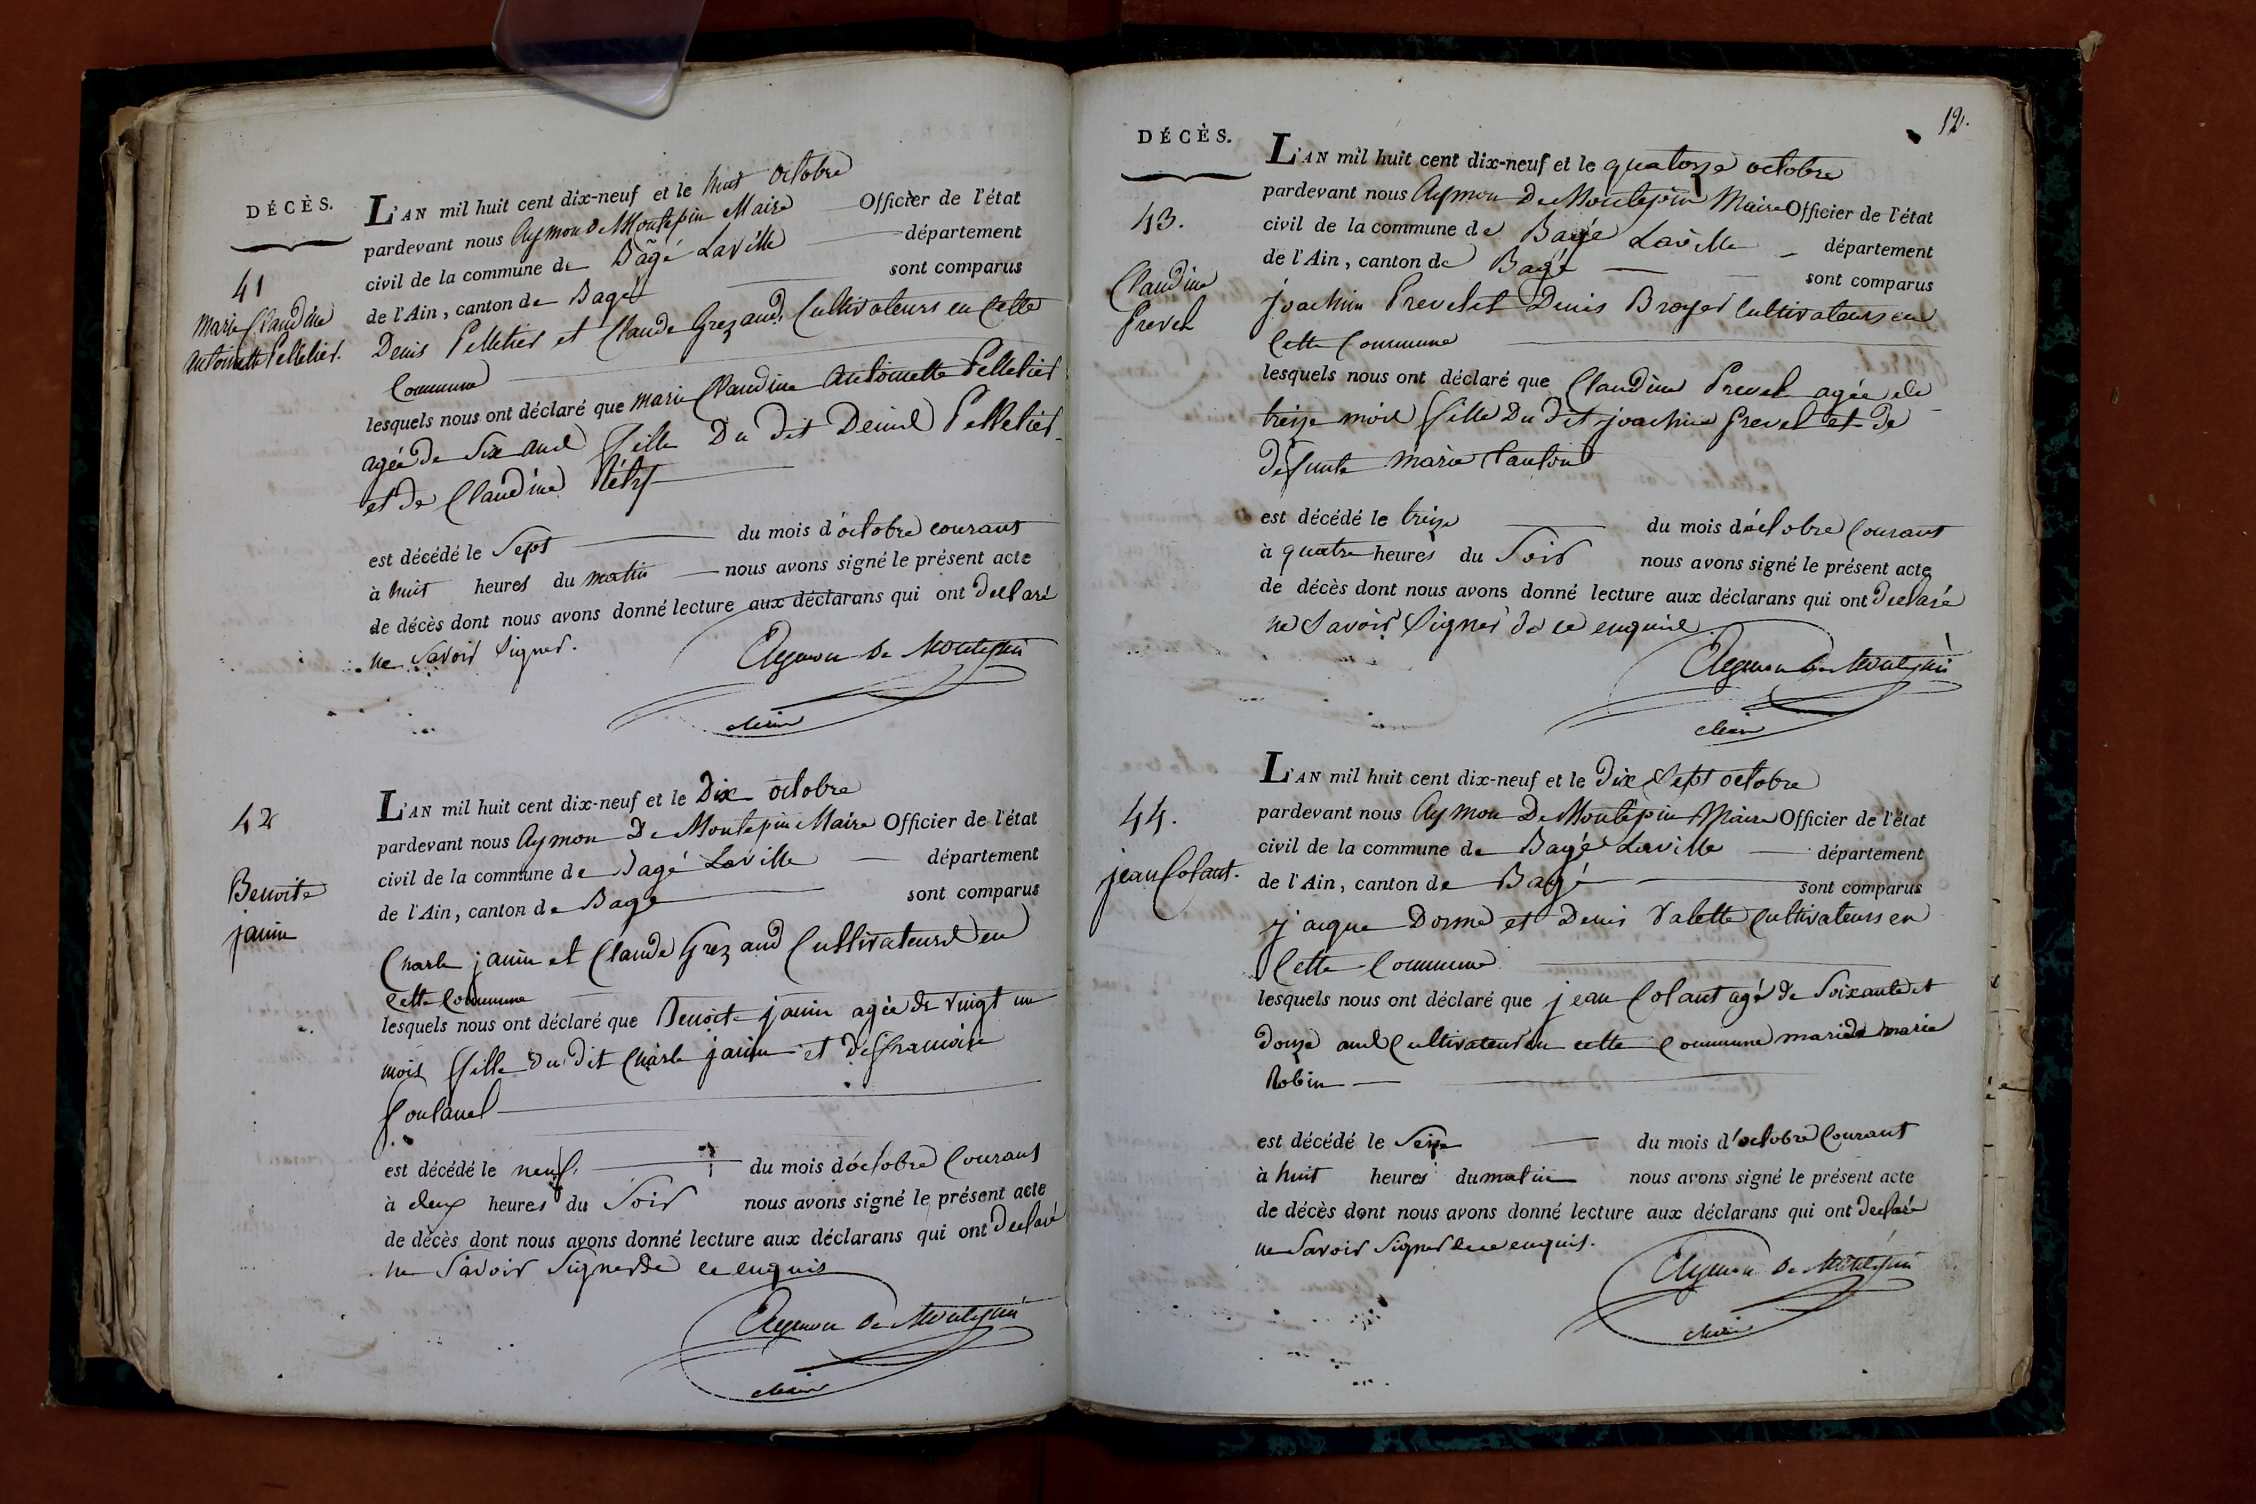 DÉCÈS.
41
marie Claudine
antoinette Pelletier.
L'AN mil huit cent dix-neuf et le huit octobre
pardevant nous Aymon De Montepin Maire Officier de l'état
civil de la commune de Bâgé Laville département
de l'Ain, canton de Bagé sont comparus
Denis Pelletier et Claude Grezaud Cultivateurs en Cette
Commune
lesquels nous ont déclaré que marie Claudine antoinette Pelletier
agée de Six ans fille Du dit Denis Pelletier
et de Claudine
est décédé le Sept du mois d'octobre courant
à huit heures du matin nous avons signé le présent acte
de décès dont nous avons donné lecture aux déclarans qui ont declaré
ne Savoir Signer.
Aymon De Montepin
Maire
42
Benoite
janin
L'AN mil huit cent dix-neuf et le Dix octobre
pardevant nous Aymon De Montepin Maire Officier de l'état
civil de la commune de Bagé Laville département
de l'Ain, canton de Bagé sont comparus
Charle janin et Claude Grezaud Cultivateurs en
Cette Commune
lesquels nous ont déclaré que Benoite janin agée de vingt un
mois fille du dit Charle janin et De francoise
est décédé le neuf du mois d'octobre Courant
à deux heures du Soir nous avons signé le présent acte
de décès dont nous avons donné lecture aux déclarans qui ont Declaré
ne Savoir Signer De ce enquis
Aymon De Montepin
Maire
12.
DÉCÈS.
43.
Claudine
Prevel
L'AN mil huit cent dix-neuf et le quatorze octobre
pardevant nous Aymon De Montepin Maire Officier de l'état
civil de la commune de Bagé Laville département
de l'Ain, canton de Bagé sont comparus
joachim Prevel et Denis Broyer Cultivateurs en
Cette Commune
lesquels nous ont déclaré que Claudine Prevel agée de
treize mois fille Du dit joachim Prevel et De
défunte marie
est décédé le treize du mois d'octobre Courant
à quatre heures du Soir nous avons signé le présent acte
de décès dont nous avons donné lecture aux déclarans qui ont declaré
ne Savoir Signer de ce enquis
Aymon De Montepin
Maire
44.
jean Colant.
L'AN mil huit cent dix-neuf et le Dix Sept octobre
pardevant nous Aymon De Montepin Maire Officier de l'état
civil de la commune de Bagé Laville département
de l'Ain, canton de Bagé sont comparus
jaque Dorme et Denis Valette Cultivateurs en
Cette Commune
lesquels nous ont déclaré que jean Colant agé de Soixante et
douze ans Cultivateur en cette Commune marié à marie
Robin
est décédé le Seize du mois d'octobre Courant
à huit heures du matin nous avons signé le présent acte
de décès dont nous avons donné lecture aux déclarans qui ont declaré
ne Savoir Signer de ce enquis.
Aymon De Montepin
Maire